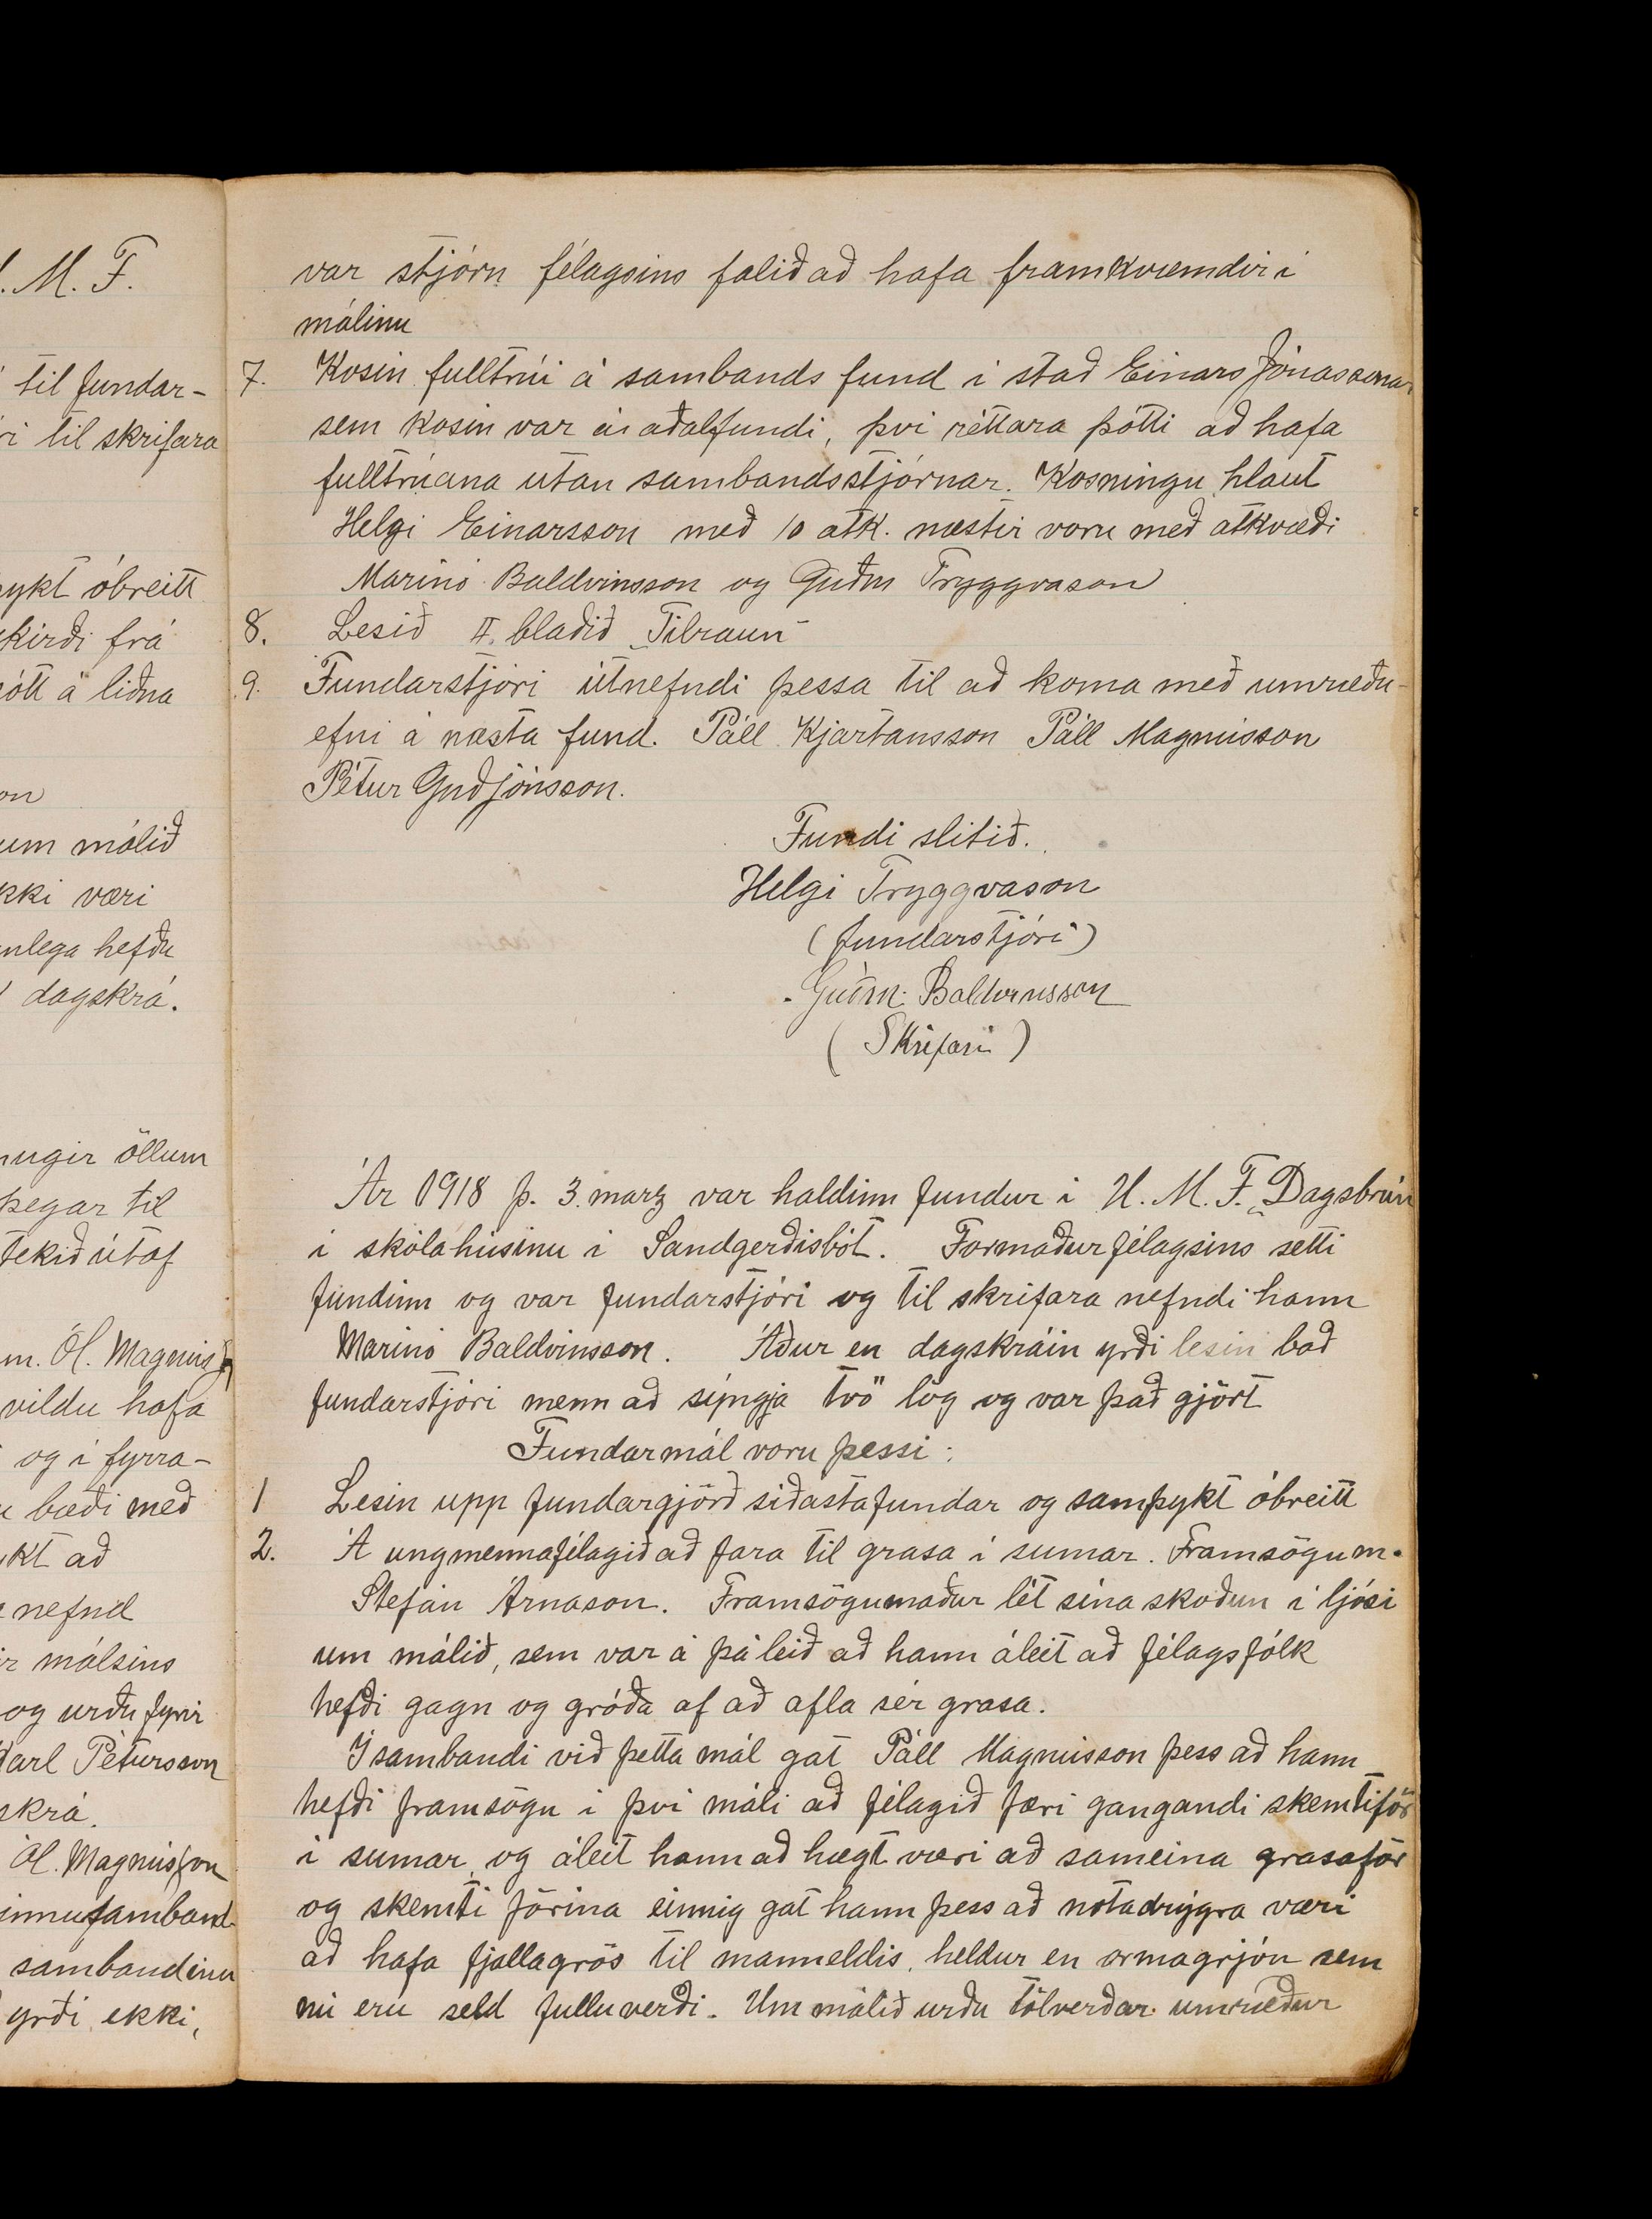 . M. F.
til fundar-
ri til skrifara
þykt óbreitt
skirði frá
sótt á liðna
on
um málið
kki væri
nlega hefðu
dagskrá.
hugir öllum
þegar til
tekið útaf
m. Ól. Magnús
vildu hafa
og i fyrra-
bæði með
kt að
nefnd
ir málsins
og urðu fyrir
Karl Pétursson
skrá.
Ól. Magnússon
innusamband
sambandinu
yrði ekki,
var stjórn félagsins falið að hafa framkvæmdir i
málinu
7. Kosin fulltrúi á sambands fund i stað Einars Jónassonar
sem kosin var á aðalfundi, þvi réttara þótti að hafa
fulltrúana utan sambandsstjórnar. Kosningu hlaut
Helgi Einarsson með 10 atk. næstir voru með atkvæði
Marinó Baldvinsson og Guðm Tryggvason
8. Lesið II. blaðið „Tilraun"
9. Fundarstjóri útnefndi þessa til að koma með umræðu-
efni á næsta fund. Páll Kjartansson Páll Magnússon
Pétur Guðjónsson.
Fundi slitið.
Helgi Tryggvason
(fundarstjóri)
Guðm. Baldvinsson
(Skrifari)
Ár 1918 þ. 3. marz var haldinn fundur i U. M. F. „Dagsbrún
i skólahúsinu i Sandgerðisbót. Formaður félagsins setti
fundinn og var fundarstjóri og til skrifara nefndi hann
Marinó Baldvinsson. Áður en dagskráin yrði lesin bað
fundarstjóri menn að sýngja tvö lög og var það gjört
Fundarmál voru þessi:
1 Lesin upp fundargjörð siðasta fundar og samþykt óbreitt
2. Á ungmennafélagið að fara til grasa i sumar. Framsögum.
Stefán Árnason. Framsögumaður lét sína skoðun i ljósi
um málið, sem var á þá leið að hann áleit að félagsfólk
hefði gagn og gróða af að afla sér grasa.
Í sambandi við þetta mál gat Páll Magnússon þess að hann
hefði framsögu i þvi máli að félagið færi gangandi skemtiför
i sumar, og áleit hann að hægt væri að sameina grasaför
og skemti förina einnig gat hann þess að notadrýgra væri
að hafa fjallagrös til manneldis, heldur en ormagrjón sem
nú eru seld fullu verði. Um málið urðu tölverðar umræður